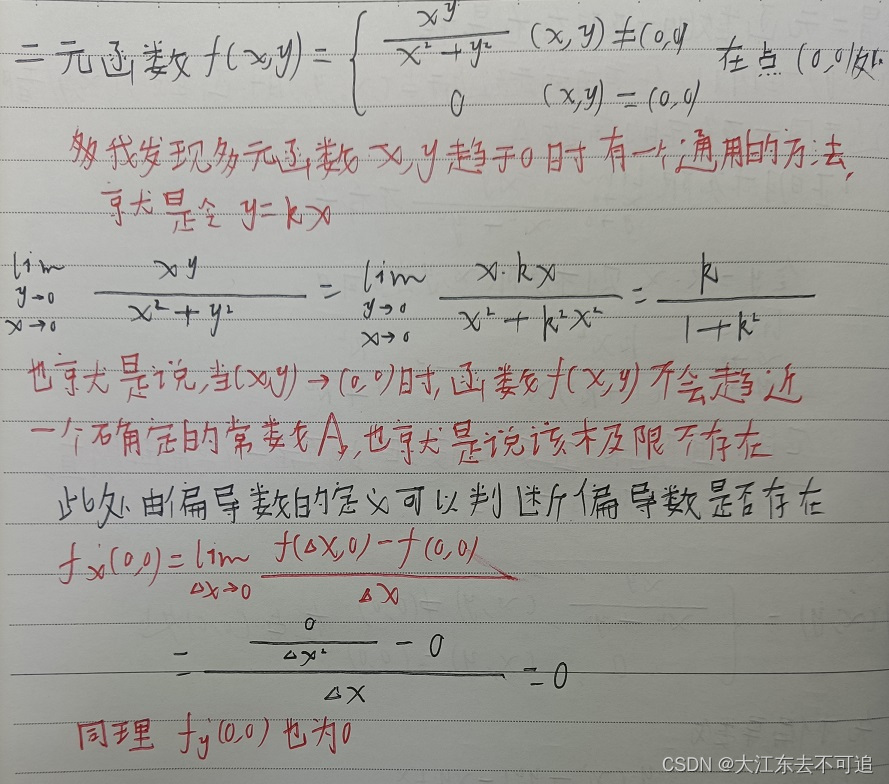 二元函数 f(x,y) = { xy / (x² + y²) (x,y) ≠ (0,0)
0 (x,y) = (0,0) 在点 (0,0)处
我发现多元函数 x,y 趋于0时有一个通用的方法,
就是令 y = kx
lim y→0 x→0 xy / (x² + y²) = lim y→0 x→0 x·kx / (x² + k²x²) = k / (1+k²)
也就是说,当(x,y)→(0,0)时,函数 f(x,y) 不会趋近
一个确定的常数A,也就是说该极限不存在
此处由偏导数的定义可以判断偏导数是否存在
fx'(0,0) = lim Δx→0 (f(Δx,0) − f(0,0)) / Δx
= (0/Δx² − 0) / Δx = 0
同理 fy'(0,0) 也为0
CSDN @大江东去不可追